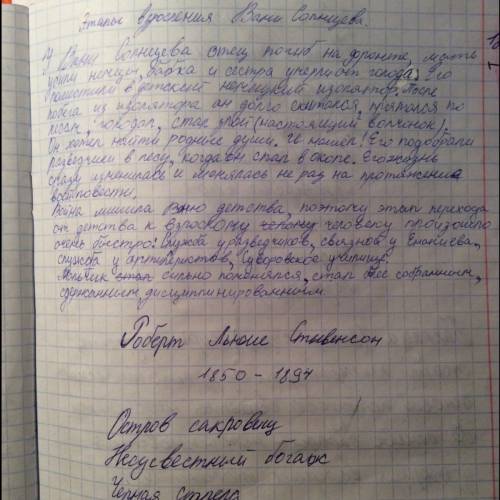 Этапы взросления Вани Солнцева.
1) У Вани Солнцева отец погиб на фронте, мать
убили немцы, бабка и сестра умерли от голода. Его
поместили в детский немецкий изолятор. После
побега из изолятора он долго скитался, прятался по
лесам, голодал, стал злой (настоящий волчонок).
Он хотел найти родные души. И нашел! Его подобрали
разведчики в лесу, когда он спал в окопе. Его жизнь
сразу изменилась и менялась не раз на протяжении
всей повести.
Война лишила Ваню детства, поэтому этап перехода
от детства к взрослому человеку произошло
очень быстро: служба у разведчиков, связной у Енакиева,
служба у артиллеристов, Суворовское училище.
Мальчик стал сильно поменялся, стал собранным,
сдержанным, дисциплинированным.
Роберт Льюис Стивенсон
1850 - 1894
Остров сакровищ
Неизвестный
Черная стрела